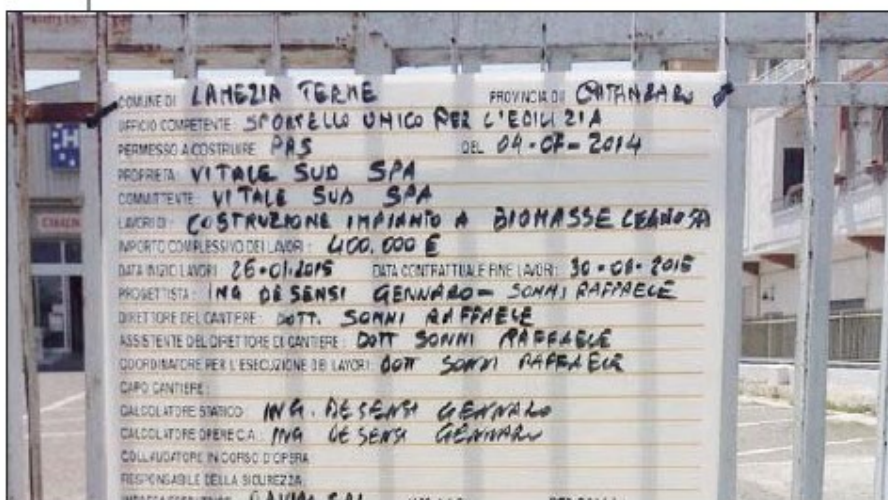 COMUNE DI LAMEZIA TERME PROVINCIA DI CATANZARO
UFFICIO COMPETENTE SPORTELLO UNICO PER L'EDILIZIA
PERMESSO A COSTRUIRE PAS DEL 04-07-2014
PROPRIETÀ VITALE SUD SPA
COMMITTENTE: VITALE SUD SPA
LAVORI DI: COSTRUZIONE IMPIANTO A BIOMASSE LEGNOSA
IMPORTO COMPLESSIVO DEI LAVORI: 400.000 €
DATA INIZIO LAVORI 26-01-2015 DATA CONTRATTUALE FINE LAVORI: 2015
PROGETTISTA: ING DE SENSI GENNARO - SONNI RAFFAELE
DIRETTORE DEL CANTIERE: DOTT. SONNI RAFFAELE
ASSISTENTE DEL DIRETTORE DI CANTIERE: DOTT SONNI RAFFAELE
COORDINATORE PER L'ESECUZIONE DEI LAVORI DOTT SONNI RAFFAELE
CAPO CANTIERE:
CALCOLATORE STATICO: ING. DE SENSI GENNARO
CALCOLATORE OPERE C.A. ING DE SENSI GENNARO
COLLAUDATORE IN CORSO D'OPERA
RESPONSABILE DELLA SICUREZZA: